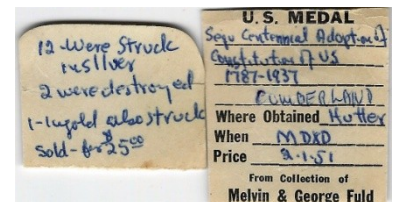 12-Were Struck
in Silver
2 were destroyed
1-in gold also struck
Sold-for $25.00
U.S. MEDAL
Sequ Centennial Adoption of
Constitution of US
1787-1937
CUMBERLAND
Where Obtained Hutter
When MDXD
Price 2-1-51
From Collection of
Melvin & George Fuld